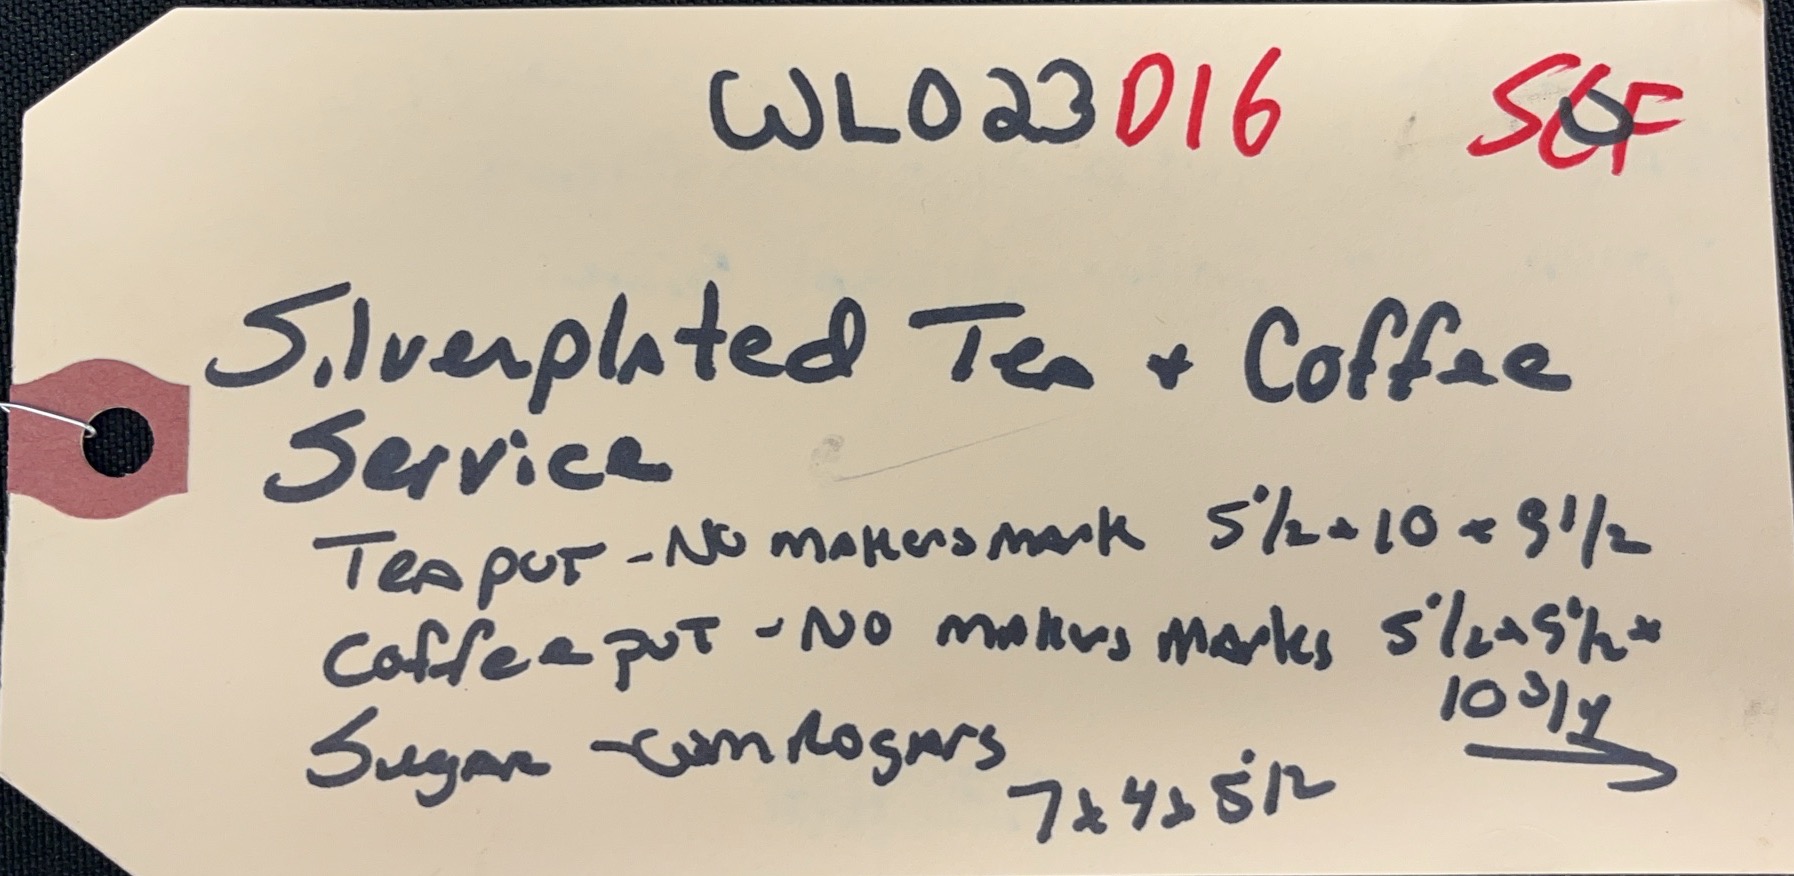 WL023D16 SCF
Silverplated Tea + Coffee
Service
Teapot - No makers mark 5 1/2 x 10 x 9 1/2
Coffee pot - No makers marks 5 1/2 x 9 1/2 x
10 3/4
Sugar - Wm Rogers
7 x 4 x 5 1/2